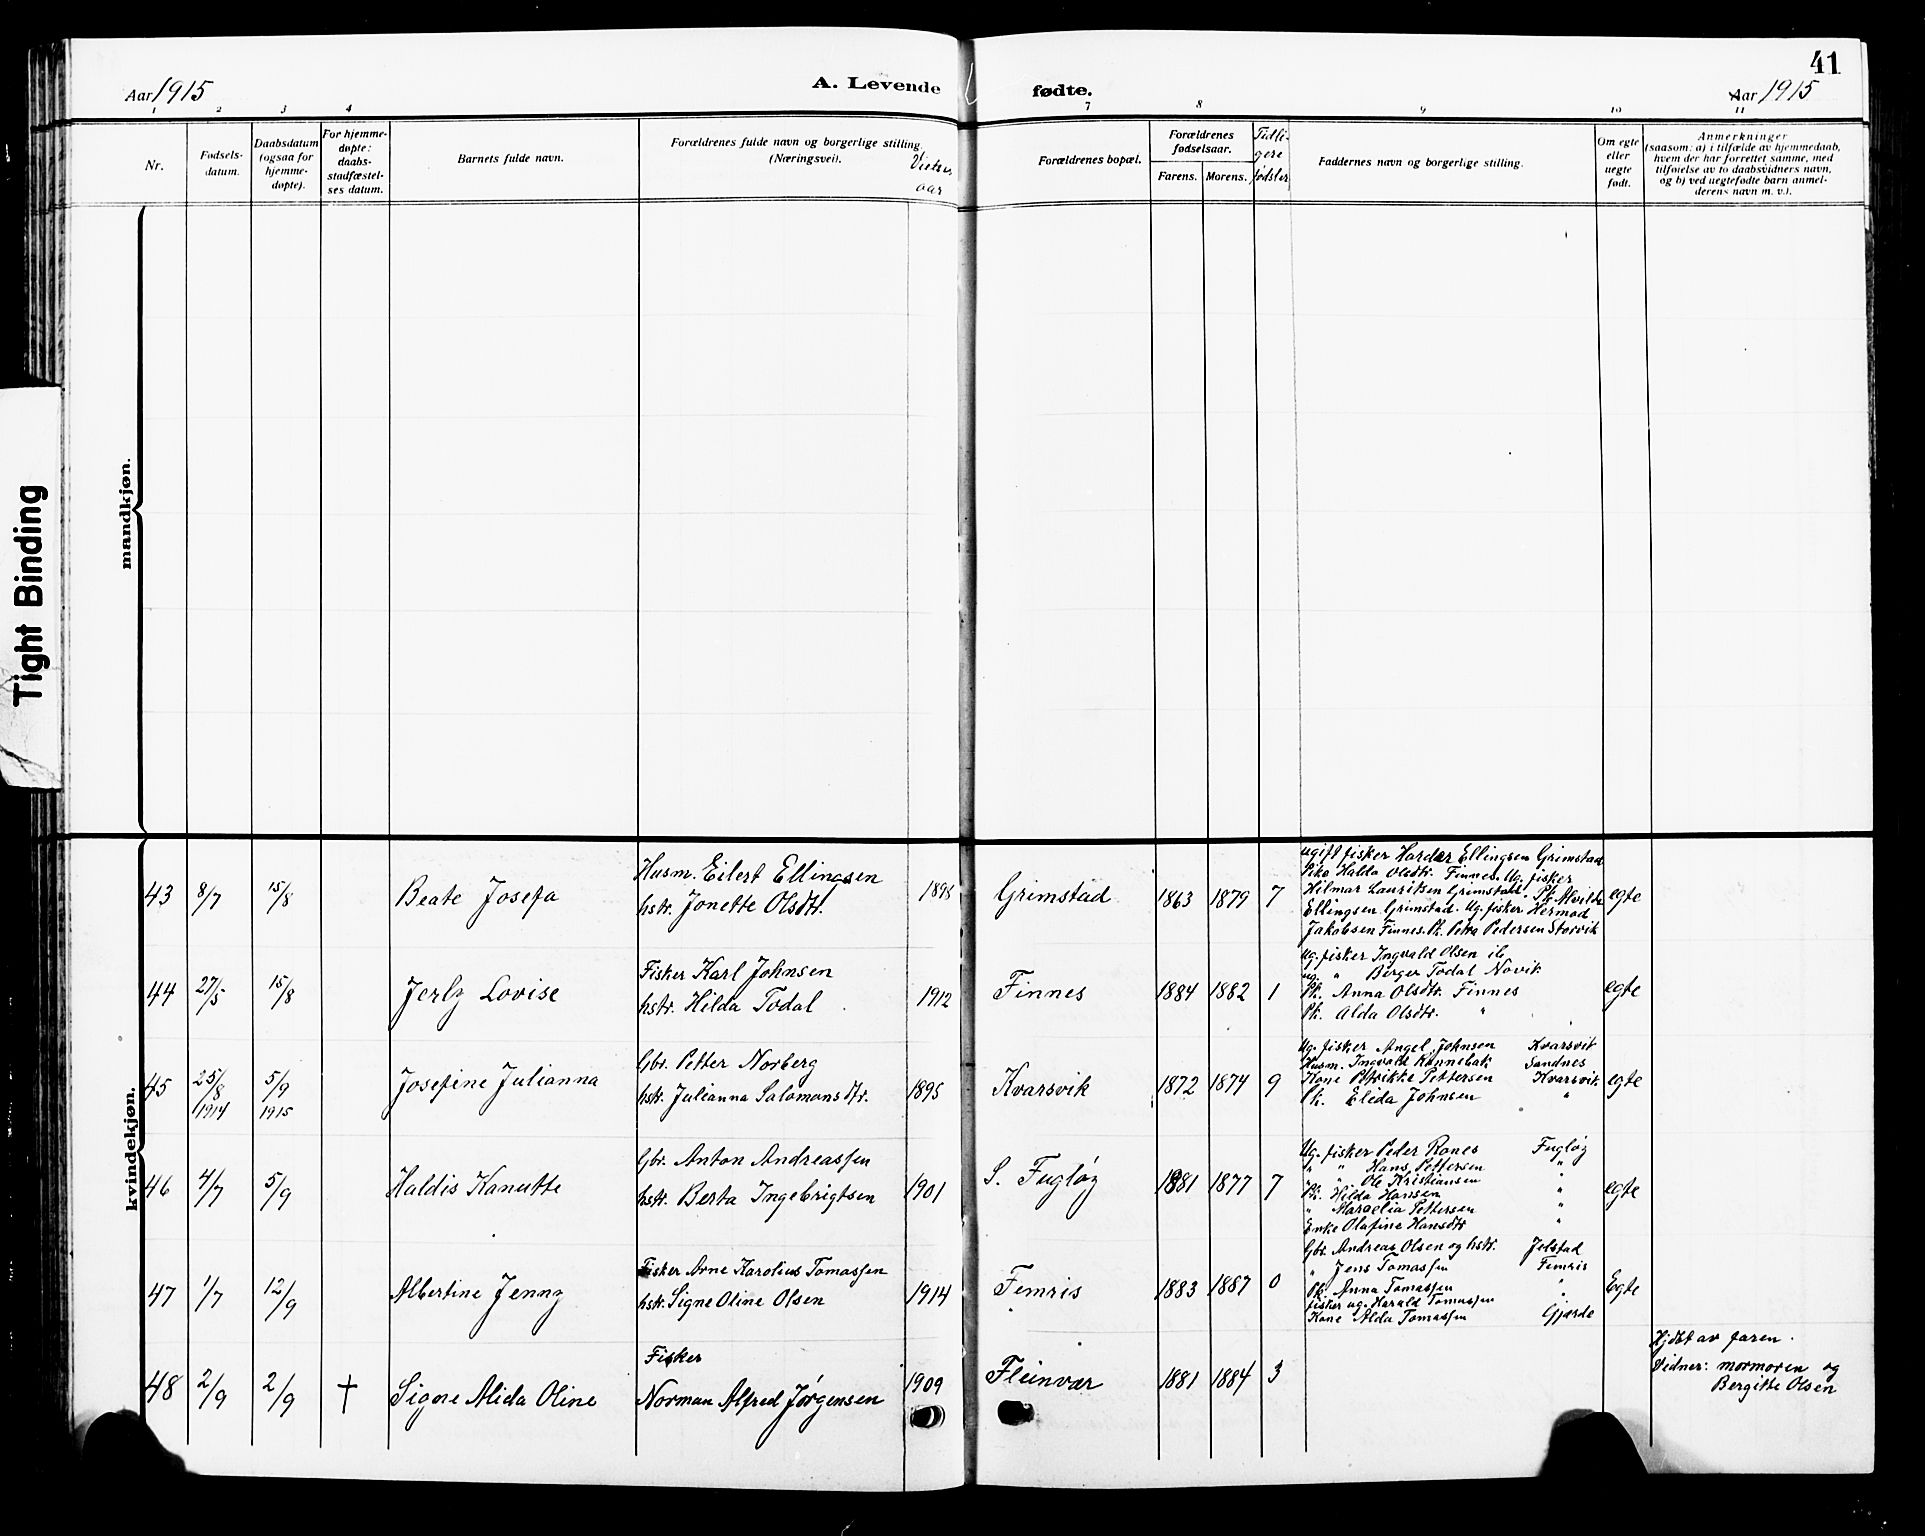 41
Aar 1915
A. Levende
fødte.
Aar 1915
1 2 3 4 7 8 9 10 11
Nr.
Fødsels-
datum.
Daabsdatum
(ogsaa for
hjemme-
døpte).
For hjemme-
døpte:
daabs-
stadfæstel-
ses datum.
Barnets fulde navn.
Forældrenes fulde navn og borgerlige stilling
(Næringsvei).
Vielses
aar
Forældrenes bopæl.
Forældrenes
fødselsaar.
Farens.
Morens.
Tidli-
gere
fødsler
Faddernes navn og borgerlige stilling.
Om egte
eller
uegte
født.
Anmerkninger
(saasom: a) i tilfælde av hjemmedaab,
hvem der har forrettet samme, med
tilføielse av to daabsvidners navn,
og b) ved uegtefødte barn anmel-
derens navn m. v.).
Tight Binding
mandkjøn.
kvindekjøn.
43 8/7 15/8 Beate Josefa
Husm. Eilert Ellingsen
hstr. Jonette Olsdtr.
1898 Grimstad 1863 1879 7
ugift fisker Hardar Ellingsen Grimstad
Pike Halda Olsdtr. Finnes. Ug. fisker
Hilmar Lauritsen Grimstad. Pk. Alvilde
Ellingsen Grimstad. Ug. fisker Hermod
Jakobsen Finnes. Pk. Petra Pedersen Storvik
egte
44 27/5 15/8 Jerly Lovise
Fisker Karl Johnsen
hstr. Hilda Todal
1912 Finnes 1884 1882 1
ug. fisker Ingvald Olsen ib
ug. " Berger Todal Novik
Pk. Anna Olsdtr. Finnes
Pk. Alda Olsdtr. "
egte
45 25/8 1914 5/9 1915 Josefine Julianna
Gbr. Petter Norberg
hstr. Julianna Salomonsdtr.
1895 Kvarsvik 1872 1874 9
Ug. fisker Angel Johnsen Kvarsvik
Husm. Ingvald Rønnebak Sandnes
Kone Petrikke Pettersen Kvarsvik
Pk. Elida Johnsen "
egte
46 4/7 5/9 Haldis Kanutte
Gbr. Anton Andreassen
hstr. Berta Ingebrigtsen
1901 S. Fugløy 1881 1877 7
Ug. fisker Peder Rones Fugløy
" " Hans Pettersen "
" " Ole Kristiansen
Pk. Hilda Hansen "
" Marselia Pettersen "
Enke Olafine Hansdtr "
egte
47 1/7 12/9 Albertine Jenny
Fisker Arne Karolius Tomassen
hstr. Signe Oline Olsen
1914 Femris 1883 1887 0
Gbr. Andreas Olsen og hstr. Jelstad
" Jens Tomassen Femris
Pk. Anna Tomassen "
fisker ug. Harald Tomassen
Kone Alda Tomassen Gjærde
Egte
48 2/9 2/9 † Signe Alida Oline
Fisker
Norman Alfred Jørgensen
1909 Fleinvær 1881 1884 3
Hjdbt av faren.
Vidner: mormoren og
Bergitte Olsen